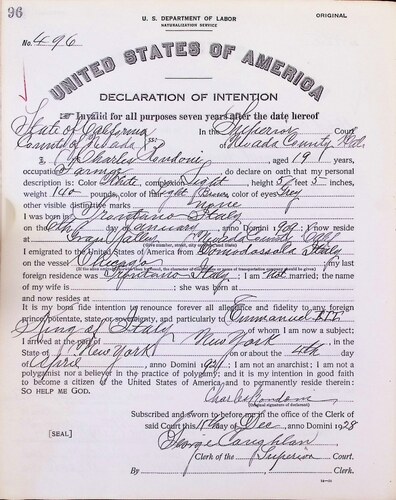 96
U. S. DEPARTMENT OF LABOR
NATURALIZATION SERVICE
ORIGINAL
No. 496
UNITED STATES OF AMERICA
DECLARATION OF INTENTION
Invalid for all purposes seven years after the date hereof
State of California
County of Nevada ss:
In the Superior Court
of Nevada County Cal.
I, Charlie Rondoni, aged 19 years,
occupation Farmer, do declare on oath that my personal
description is: Color White, complexion Light, height 5 feet 5 inches,
weight 140 pounds, color of hair Light Brown, color of eyes Grey
other visible distinctive marks none
I was born in Trontano Italy
on the 6th day of January, anno Domini 1909; I now reside
at Grass Valley Nevada County Calif.
I emigrated to the United States of America from Domodossola Italy
on the vessel; my last
foreign residence was Trontano Italy; I am not married; the name
of my wife is; she was born at
and now resides at
It is my bona fide intention to renounce forever all allegiance and fidelity to any foreign
prince, potentate, state, or sovereignty, and particularly to Emmanuel III
King of Italy, of whom I am now a subject;
I arrived at the port of New York, in the
State of New York, on or about the 4th day
of April, anno Domini 1921; I am not an anarchist; I am not a
polygamist nor a believer in the practice of polygamy; and it is my intention in good faith
to become a citizen of the United States of America and to permanently reside therein:
SO HELP ME GOD.
Charlie Rondoni
(Original signature of declarant)
Subscribed and sworn to before me in the office of the Clerk of
said Court this 11th day of Dec, anno Domini 1928
[SEAL]
George Coughlan
Clerk of the Superior Court.
By, Clerk.